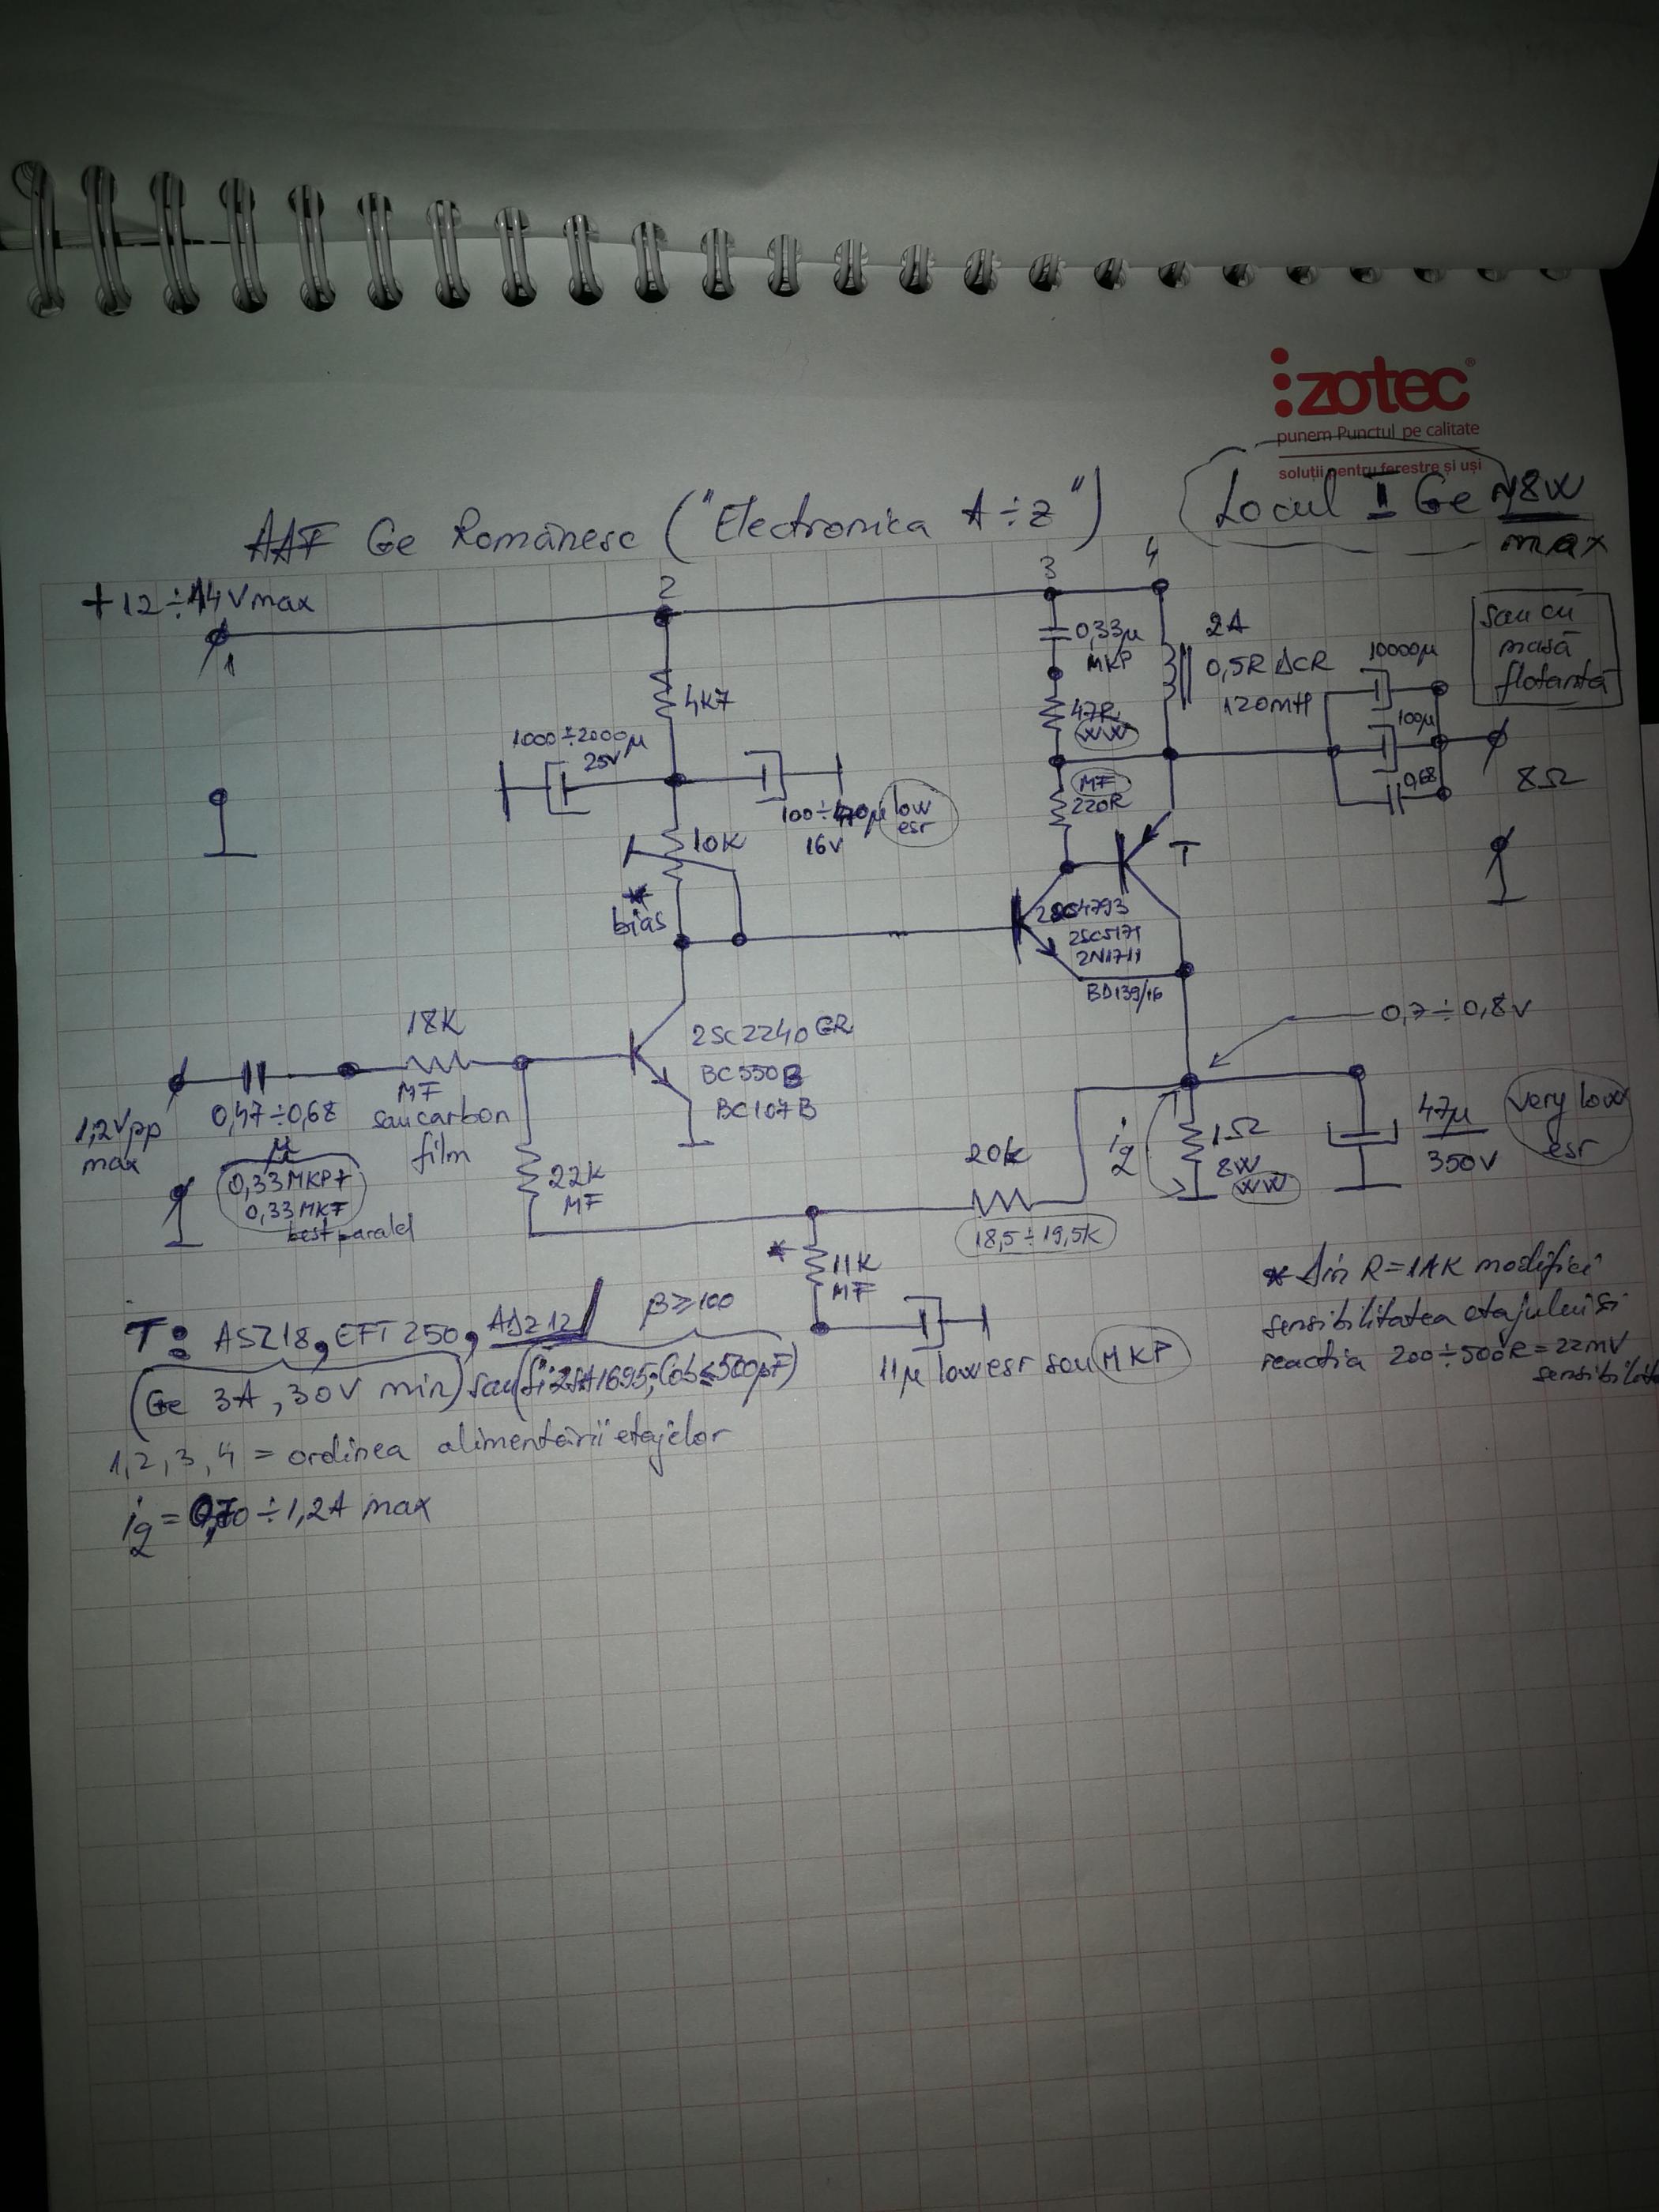 izotec®
punem Punctul pe calitate
soluții pentru ferestre și uși
AAF Ge Românesc ("Electronica A÷Z")
Locul II Ge
~8W
max
+12÷14Vmax
1
2
3
4
4K7
1000÷2000µ
25V
100÷470µ
16V
low
esr
10K
*
bias
0,33µ
MKP
47R
WW
MF
220R
2A
0,5R DCR
120mH
10000µ
100µ
0,68
sau cu
masă
flotantă
8Ω
T
2SC4793
2SC5171
2N1711
BD139/16
0,7÷0,8V
18K
MF
sau carbon
film
2SC2240 GR
BC550B
BC107B
1,2Vpp
max
0,47÷0,68
µ
0,33MKP+
0,33MKT
best paralel
22K
MF
20K
18,5÷19,5K
iq
1Ω
8W
WW
47µ
350V
very low
esr
*
11K
MF
11µ low esr sau MKP
* Din R=11K modifici
sensibilitatea etajului și
reacția 200÷500R=22mV
T: ASZ18, EFT250, ADZ12
β≥100
(Ge 3A, 30V min) sau (Si 2SA1695; Cob≤500pF)
1,2,3,4 = ordinea alimentării etajelor
iq = 0,70÷1,2A max